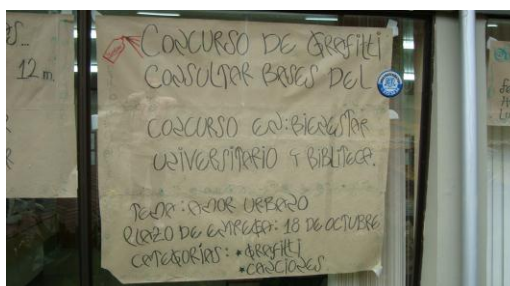 CONCURSO DE GRAFILTI
CONSULTAR BASES DEL
CONCURSO EN: BIENESTAR
UNIVERSITARIO Y BIBLITECA.
TEMA: AMOR URBANO
PLAZO DE ENTREGA: 18 DE OCTUBRE
CATEGORÍAS: * GRAFILTI
* CANCIONES
12 m.